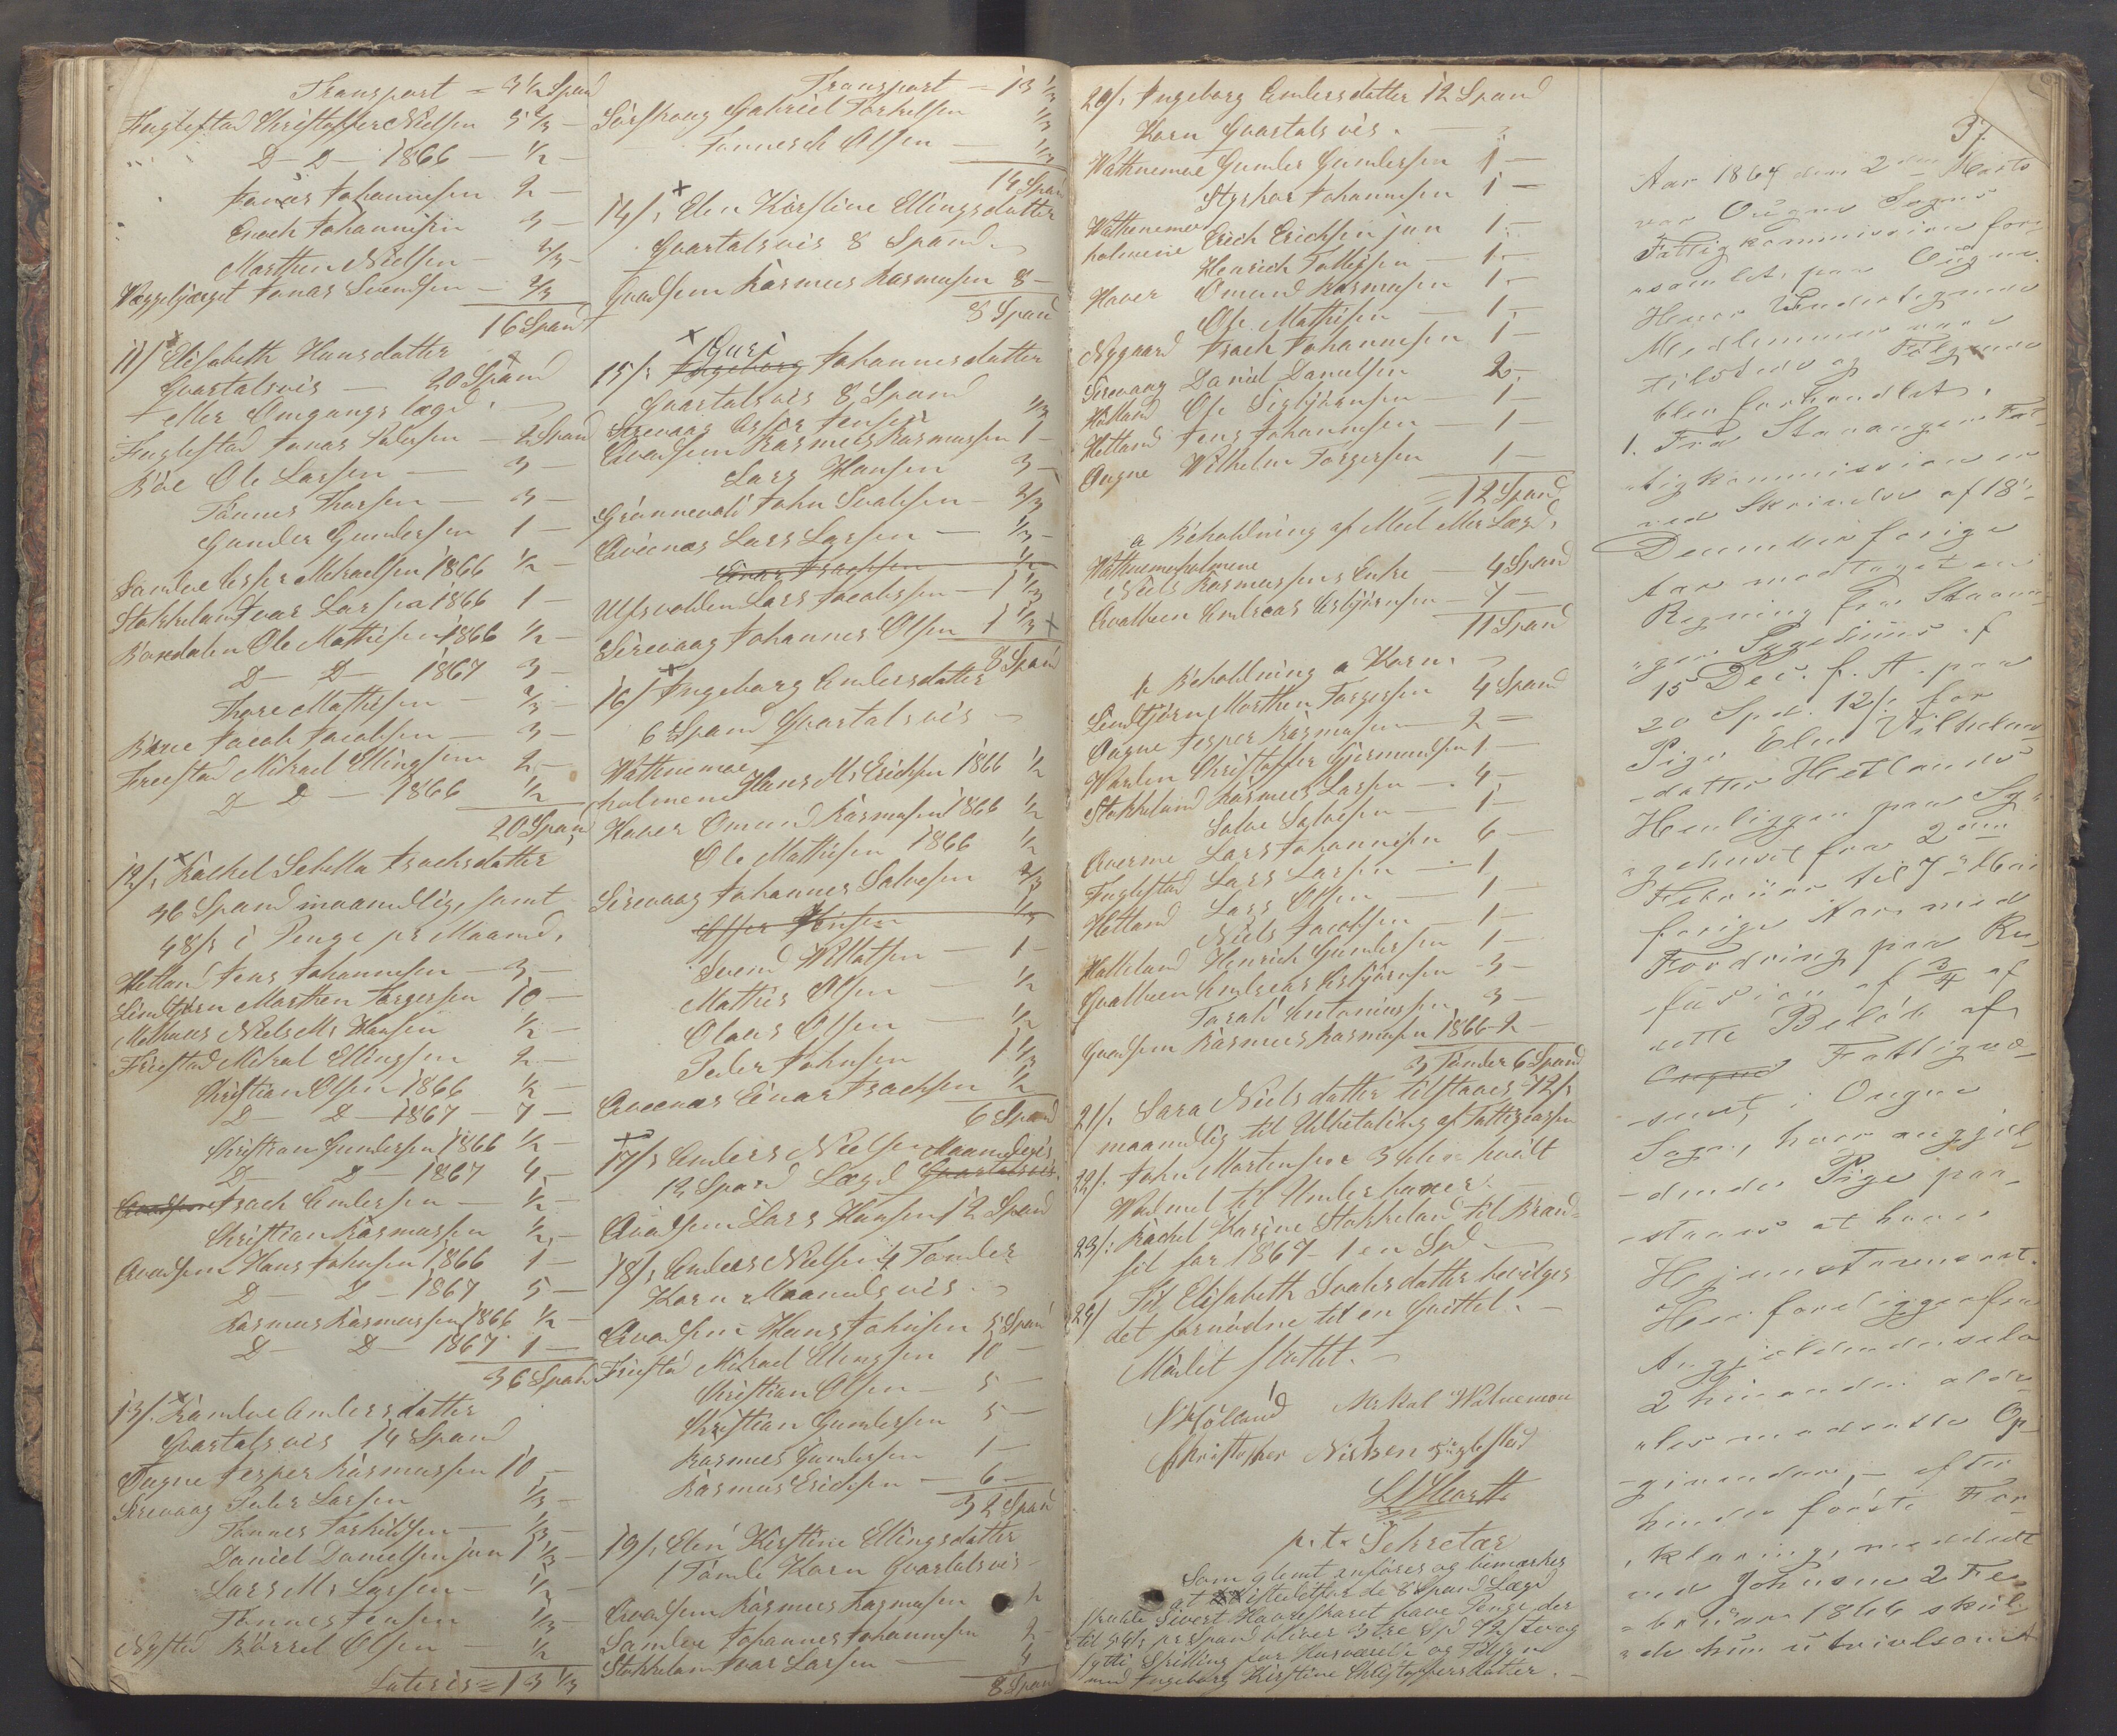 Transport = 3 1/2 Spand
Fuglestad Christoffer Nielsen 5 2/3 —
" " D— D— 1866 — 1/2 —
Jonas Johannesen 2 —
Enoch Johannesen 3 —
Marthin Nielsen — 2/3 —
Jonas Svendsen — 2/3
16 Spand
11/. Elisabeth Hansdatter
Qvartalsvis — 20 Spand
+ eller Omgangslægd.
Fuglestad Jonas Pedersen — 2 Spand
Böe Ole Larsen — 3 —
Tönnes Thorsen — 3 —
Gunder Gundersen 1 —
Mikaelsen 1866 1/2 —
Stokkeland Ivar Larsen 1866 1 —
Ole Mathisen 1866 1/2 —
D— D— 1867 3 —
Thore Mathisen — 2/3 —
Jacob Jacobsen — 3 —
Mikael Ellingsen 2 —
D— D— 1866 1/2
20 Spand
12/. Rachel Isaksdatter
36 Spand maanedlig, samt
48 s i Penge pr Maaned.
Hetland Jens Johannesen — 3 —
Lindtjörn Morthen Torgersen 10 —
Niels Ms Hansen 1/2 —
Mikal Ellingsen 2 —
Christian Olsen 1866 1/2 —
D— D— 1867 — 7 —
Christian Gundersen 1866 1/2 —
D— D— 1867 4 —
Isach Andersen — 1/2 —
Christian Rasmussen 1/2 —
Qvadsem Hans Johnsen 1866 1 —
D— D— 1867 5 —
Rasmus Rasmussen 1866 1/2 —
D— D— 1867 1 —
36 Spand
13/. Andersdatter
Qvartalsvis 14 Spand
Ougne Jesper Rasmussen 10 —
Sirevaag Peder Larsen 1/3 —
Tönnes Torkildsen — 1/3 —
Daniel Danielsen jun 1 1/3 —
Lars Ms Larsen — 1/2 —
Tönnes Jensen 1/3 —
Börrel Olsen — 1/2 —
Lateris = 13 1/3
Transport — 13 1/3
Gabriel Torkelsen 1/3
Olsen — 1/3
14 Spand
14/. Elen Kirstine Ellingsdatter
Qvartalsvis 8 Spand
Qvadsem Rasmus Rasmusen 8 —
8 Spand
Guri
15/. Ingeborg Johannesdatter
Qvartalsvis 8 Spand
Sirevaag Asser Jensen 1/3
Qvadsem Rasmus Rasmussen 1 —
Lars Hansen 3 —
John Svalesen — 2/3
Lars Larsen — 1/3 —
Einar Isachsen 1/2
Lars Jacobsen — 1 1/3
Sirevaag Johannes Olsen 1 1/3
8 Spand
16/. Ingeborg Andersdatter
6 Spand Qvartalsvis
Wathnemoe
holmene Hans Ms Erichsen 1866 1/2
Haver Omund Rasmusen 1866 1/2
Ole Mathisen 1866 1/2
Sirevaag Johannes Salvesen 2/3
Asser Jensen 1/3
Svend Willatsen — 1 —
Mathis Olsen — 1/2
Olaus Olsen — 1/2
Peder Johnsen 1 1/3
Einar Isachsen 1/2
6 Spand
17/. Anders Nielsen Maanedsvis
12 Spand Lægd Qvartalsvis
Qvadsem Lars Hansen 12 Spand
18/. Anders Nielsen 4 Tønder
Korn Maanedsvis
Qvadsem Hans Johnsen 5 Spand
Mikael Ellingsen 10 —
Christian Olsen — 5 —
Christian Gundersen 5 —
Rasmus Gundersen 1 —
Rasmus Erichsen — 6 —
32 Spand
19/. Elen Kirstine Ellingsdatter
1 Tønde Korn Qvartalsvis
Qvadsem Rasmus Rasmusen 2
Johannes Johannesen 2 —
Stokkeland Ivar Larsen — 4
8 Spand
20/. Ingeborg Andersdatter 12 Spand
Korn Qvartalsvis. —
Wathnemoe Gunder Gundersen 1 —
Styrkor Johannesen 1 —
Wathnemoe
holmene Erich Erichsen jun 1 —
Henrich Tollefsen — 1 —
Haver Omund Rasmusen 1 —
Ole Mathisen — 1 —
Nygaard Isach Johannesen 1 —
Sirevaag Daniel Danielsen 2 —
Hölland Ole Sigbjörnsen — 1 —
Hetland Jens Johannesen — 1 —
Ougne Wilhelm Torgersen 1 —
= 12 Spand
a Beholdning af Meel eller Lægd,
Wathnemoeholmene
Niels Rasmussens Enke 4 Spand
Andreas Asbjörnsen — 7 —
11 Spand
b Beholdning a Korn.
Lindtjörn Morthen Torgersen 4 Spand
Ougne Jesper Rasmusen — 2 —
Christoffer Gjermundsen 1 —
Stokkeland Rasmus Larsen — 4 —
Salve Salvesen — 1 —
Lars Johannesen 6 —
Fuglestad Lars Larsen — 1
Hetland Lars Olsen — 1 —
Niels Jacobsen — 1 —
Henrich Gundersen 1 —
Andreas Asbjörnsen 3 —
Taralt Antoniussen 3 —
Qvadsem Rasmus Rasmusen 1866 — 2 —
3 Tønder 6 Spand
21/. Sara Nielsdatter tilstaaes 72 s
maanedlig til Udbetaling af Fattigcassen
22/. John Mortensen 3 Alen hvidt
Wadmel til Underbuxer. —
23/. Rachel Karine Stokkeland til Brand-
sel for 1867 — 1 en Spd.
24/ Til Elisabeth Svalesdatter bevilges
det fornödne til en
Mödet sluttet. —
Hölland Mikal Watnemoe
Christopher Nielsen Fuglestad
p. t. Sekretær
Som glemt anføres og bemærkes
at istedetfor de 8 Spand Lægd
Sivert have Penge der
til pr Spand bliver 3 tre Spd 72 s to og
sytti Skilling for Huusværelse og Tilsyn
med Ingeborg Kirstine Christophersdatter. —
37.
Aar 1867 den 2den Marts
var Ougne Sogns
Fattigkommission for-
samlet paa Ougne.
Hvor Undertegnede
Medlemmer vare
tilstede og Følgende
blev forhandlet.
1. Fra Stavanger Fat-
tigkommission er
ved Skrivelse af 18de
December forige
Aar modtaget en
Regning fra Stavan-
ger Sygehuus af
15 Dec. f. A. paa
20 Spd. 12 s for
Pige Elen Vilhelms-
datter Hetlands
Henliggen paa Sy-
gehuset fra 2den
Februar til 7de Mai
forige Aar med
Fordring paa Re-
fusion af 3/4 af
dette Beløb af
Ougne Fattigvæ-
senet, i Ougne
Sogn, hvor angjel-
dende Pige paa-
staaes at have
Hjemstavnsret.
Her foreligger fra
Angjældendes selv
2 hinanden alde-
les modsatte Op-
givender, — efter
hendes første For-
klaring, meddelt
ved Johnsen 2 Fe-
bruar 1866 skul-
de hun utvivlsomt